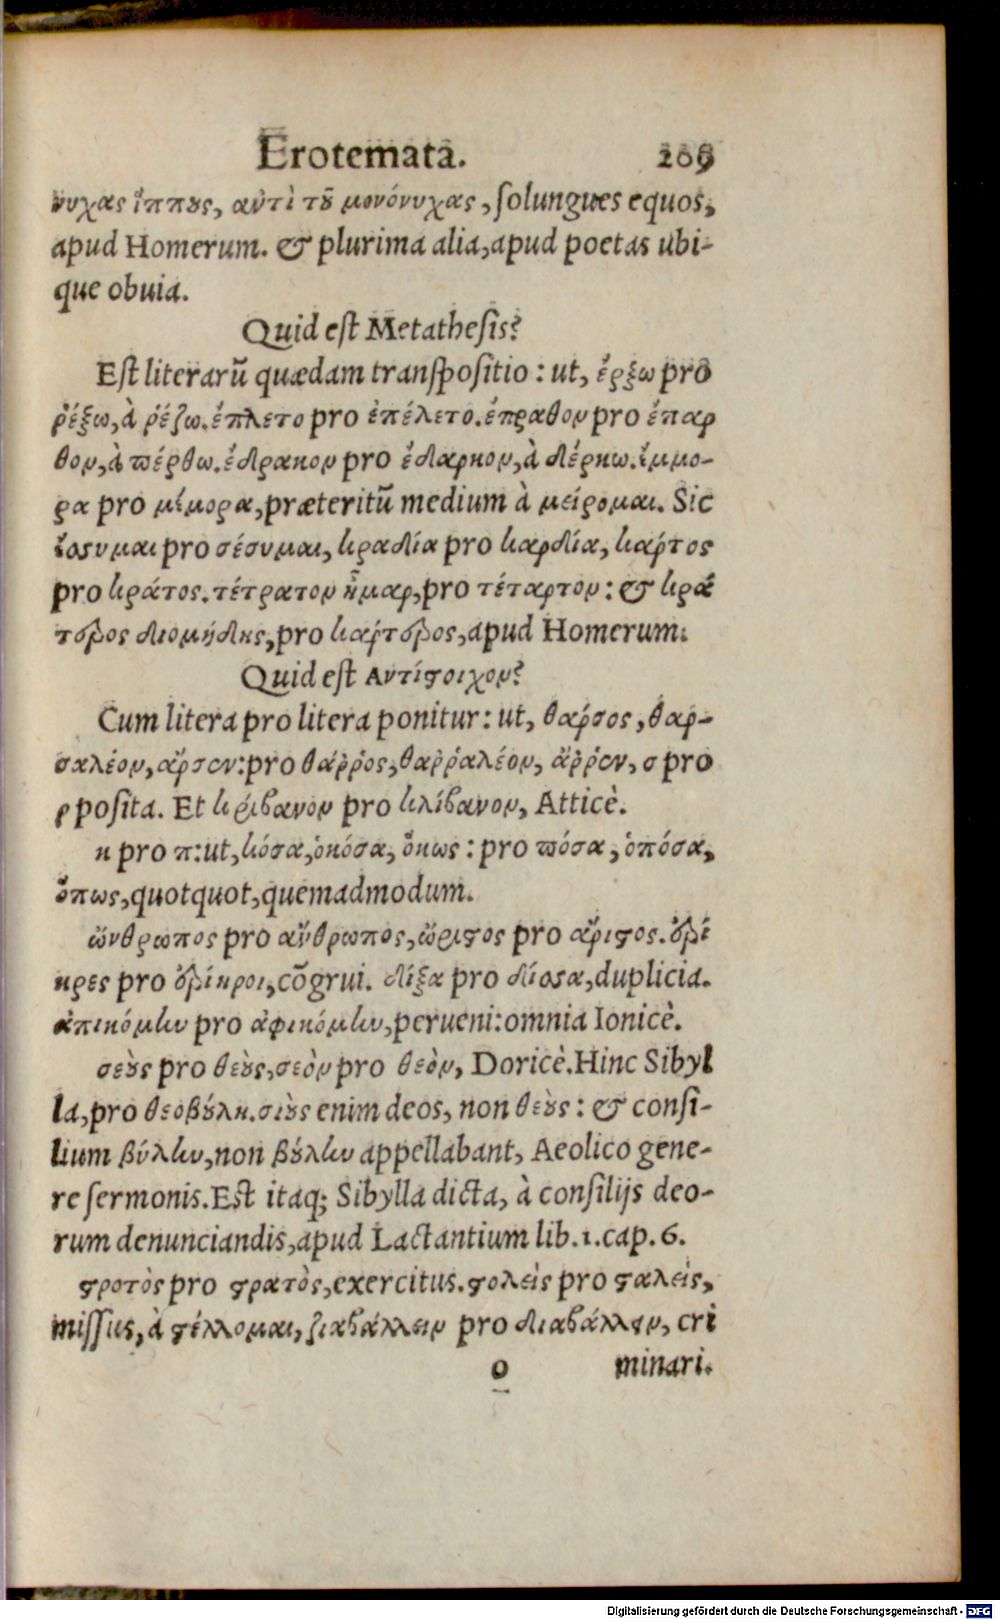 Erotemata. 209
νυχας ἵππους, αὐτὶ τοῦ μονόνυχας, solungues equos,
apud Homerum. & plurima alia, apud poetas ubi-
que obuia.
Quid est Metathesis?
Est literarũ quædam transpositio: ut, ἔρξω pro
ῥέξω, à ῥέζω. ἔπλετο pro ἐπέλετο. ἔπραθον pro ἔπαρ
θον, à πέρθω. ἔδρακον pro ἔδαρκον, à δέρκω. ἔμμο-
ρα pro μέμορα, præteritũ medium à μείρομαι. Sic
ἔσσυμαι pro σέσυμαι, κραδία pro καρδία, κάρτος
pro κράτος. τέτρατον ἦμαρ, pro τέταρτον: & κρά
τερος διομήδης, pro κάρτερος, apud Homerum.
Quid est Αντίστοιχον?
Cum litera pro litera ponitur: ut, θάρσος, θαρ-
σαλέον, ἄρσεν: pro θάῤῥος, θαῤῥαλέον, ἄῤῥεν, σ pro
ρ posita. Et κρίβανον pro κλίβανον, Atticè.
κ pro π: ut, κόσα, ὁκόσα, ὅκως: pro πόσα, ὁπόσα,
ὅπως, quotquot, quemadmodum.
ὤνθρωπος pro ἄνθρωπος, ὤριστος pro ἄριστος.
κρες pro cõgrui. δίξα pro δίσσα, duplicia.
ἀπικόμην pro ἀφικόμην, perueni: omnia Ionicè.
σεοὺς pro θεοὺς, σεὸν pro θεὸν, Doricè. Hinc Sibyl
la, pro θεοβούλη. σιοὺς enim deos, non θεοὺς: & consi-
lium βύλην, non βούλην appellabant, Aeolico gene-
re sermonis. Est itaq; Sibylla dicta, à consilijs deo-
rum denunciandis, apud Lactantium lib. 1. cap. 6.
στροτὸς pro στρατὸς, exercitus. στολεὶς pro σταλεὶς,
missus, à στέλλομαι, ζιαβάλλειν pro διαβάλλειν, cri
o minari.
Digitalisierung gefördert durch die Deutsche Forschungsgemeinschaft - DFG